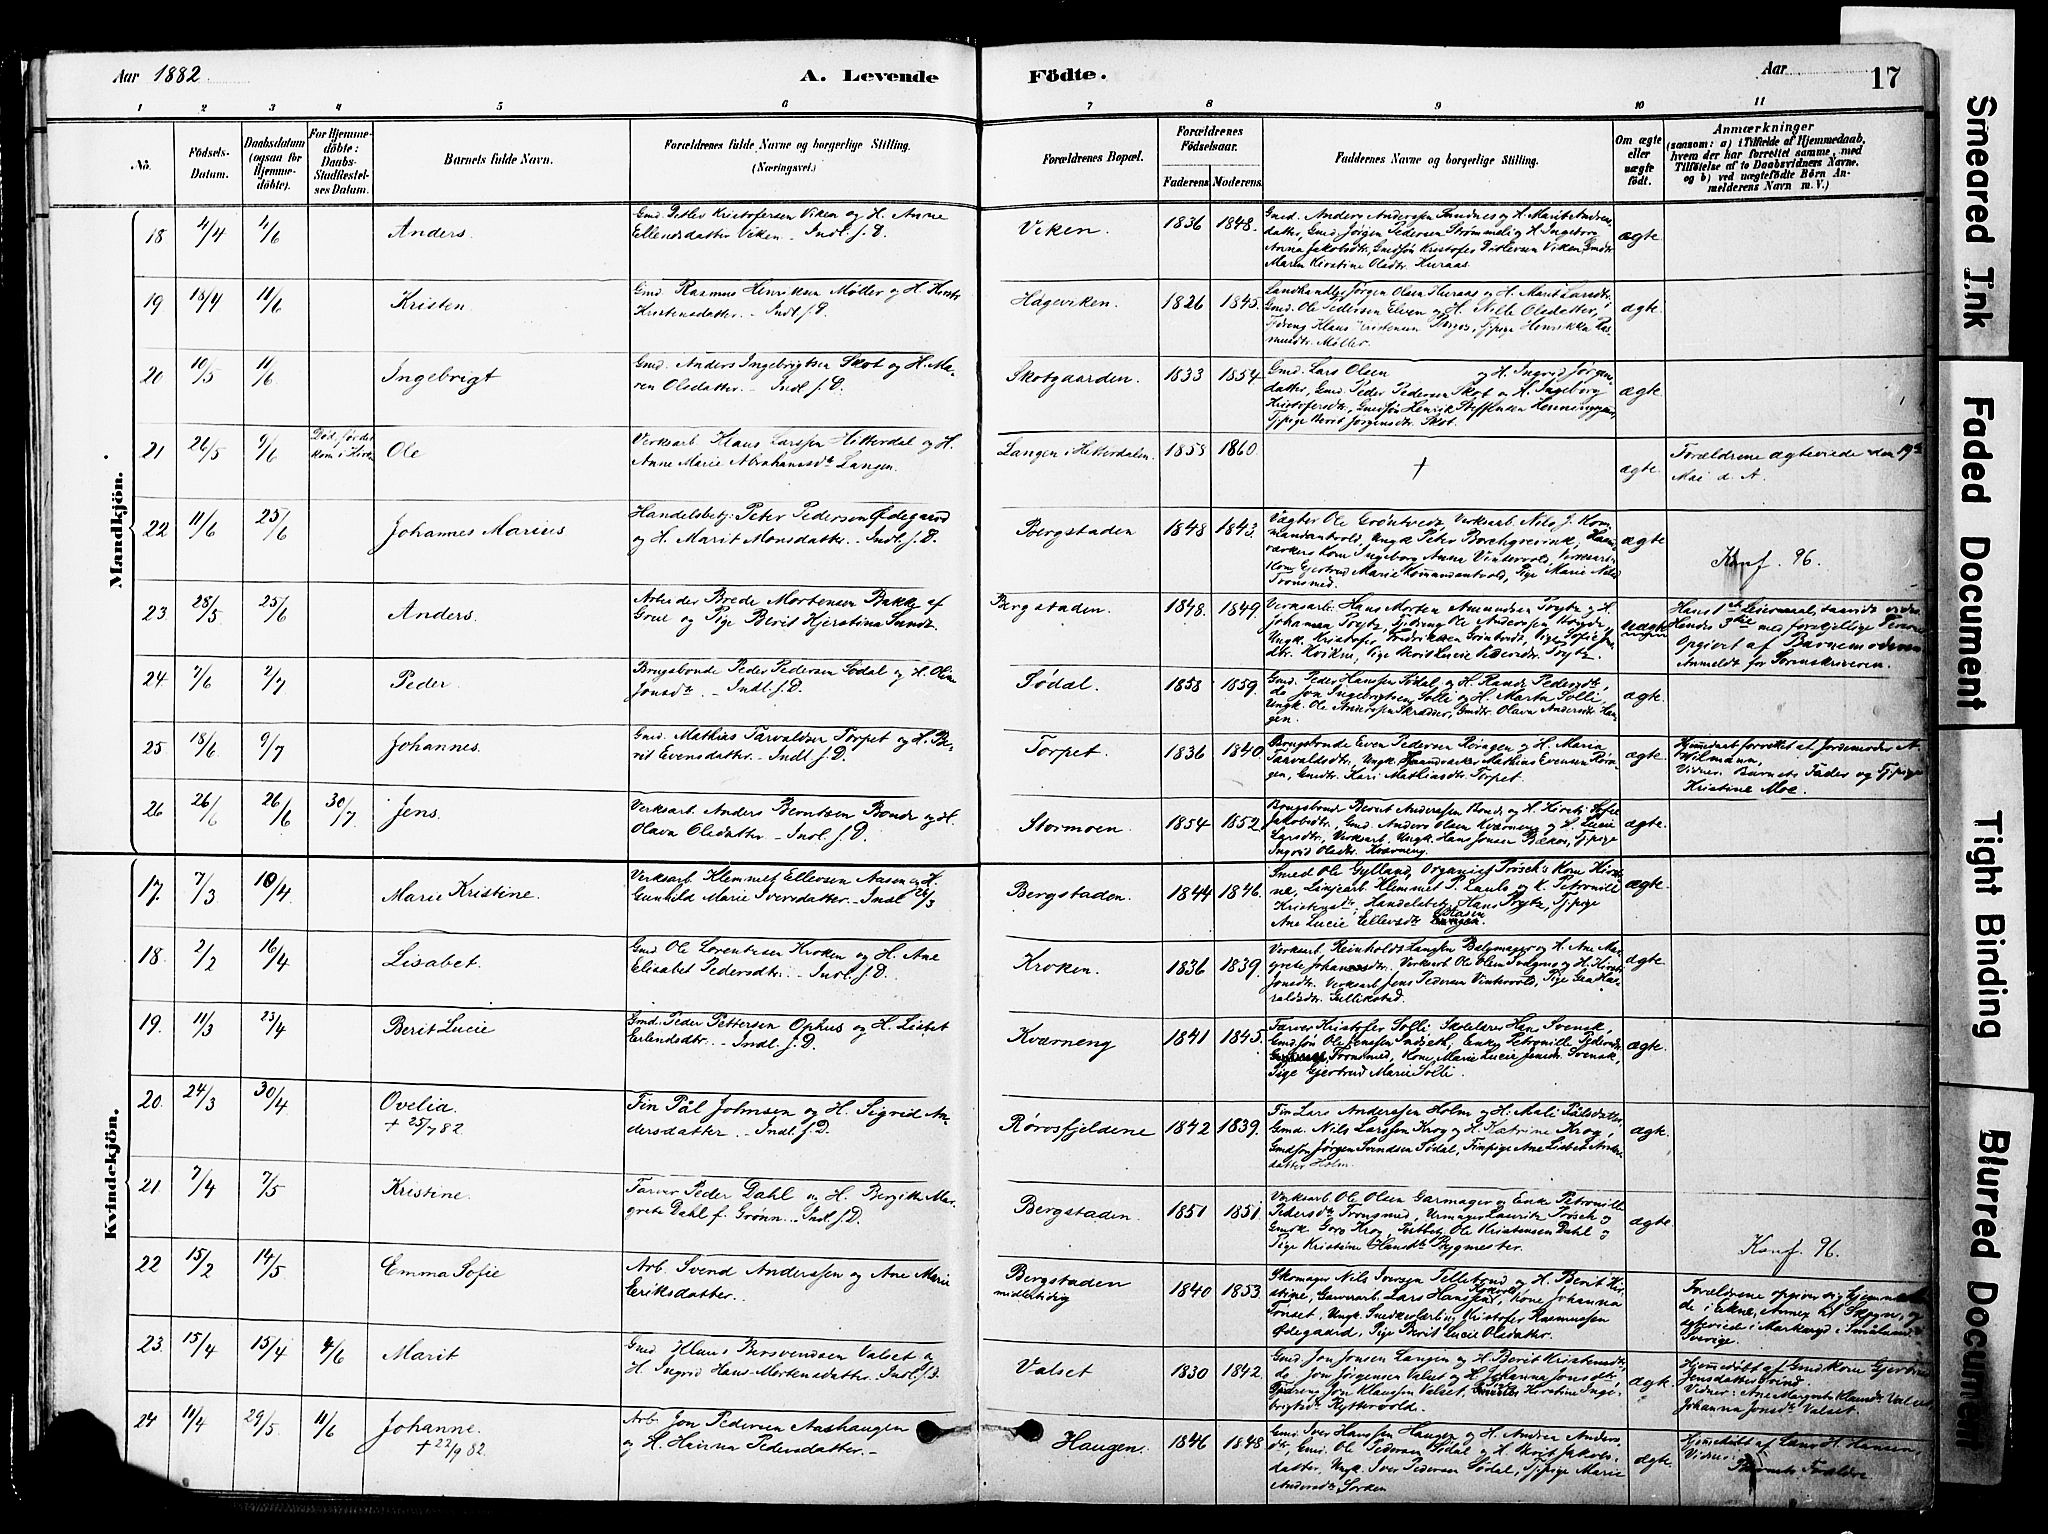 Aar 1882
A. Levende
Födte.
Aar
17
1 2 3 4 5 6 7 8 9 10 11
No.
Födsels-Datum.
Daabsdatum (ogsaa for Hjemme-döbte).
For Hjemme-döbte: Daabs-Stadfæstel-ses Datum.
Barnets fulde Navn.
Forældrenes fulde Navne og borgerlige Stilling.
(Næringsvei.)
Forældrenes Bopæl.
Forældrenes Födselsaar.
Faderens. Moderens.
Faddernes Navne og borgerlige Stilling.
Om ægte eller uægte födt.
Anmærkninger
(saasom: a) i Tilfælde af Hjemmedaab, hvem der har forrettet samme, med Tilföielse af to Daabsvidners Navne. og b) ved uægtefödte Börn Anmelderens Navn m. V.)
Mandkjön.
18 4/4 4/6 Anders.
Gmd. Detlev Kristofersen Viken og H. Anne
Ellendsdatter Viken. Indl. f. D.
Viken 1836 1848.
Gmd. Anders Anderssen Sundnes og H. Marit Anders-
datter, Gmd. Jörgen Pedersen Strömmeli og H. Ingeborg
Anna Jakobsdtr., Gmdsön Kristofer Detlevsen Viken, Gmdtr.
Maren Kirstine Olsdtr. Kuraas.
ægte.
19 18/4 11/6 Kristen.
Gmd. Rasmus Henriksen Møller og H.
Kristensdatter. Indl. f. D.
Hageviken. 1826 1845.
Landhandler Jörgen Olsen Kuraas og H. Marit Larsdtr.,
Gmd. Ole Pedersen Elven og H. Nille Olsdatter,
Tjdreng Klaus Kristensen, Tjpige Henrikka Ras-
musdtr. Møller.
ægte.
20 10/5 11/6 Ingebrigt
Gmd. Anders Ingebrigtsen Skot og H. Ma-
ren Olsdatter. Indl. f. D.
Skotgaarden. 1833 1854
Gmd. Lars Olsen og H. Ingrid Jörgens-
datter, Gmd. Peder Pedersen Skot og H. Ingeborg
Kristofersdtr., Gmdsön Henrik Steffensen Henningsgaard,
Tjpige Berit Jörgensdtr. Skot.
ægte
21 26/5 9/6 Död, för det kom i Kirken Ole
Verksarb. Klaus Larssen Hitterdal og H.
Anne Marie Abrahamsdtr. Langen.
Langen i Hitterdalen. 1858 1860.
+
ægte.
Forældrene ægteviede den 19de
Mai d. A.
22 11/6 25/6 Johannes Marius
Handelsbetj. Peter Pedersen Ödegaard
og H. Marit Monsdatter. Indl. f. D.
Bergstaden 1848 1843.
Vægter Ole Gröntvedt, Verksarb. Nils J. Kom-
mandantvold, Ungk. Peter Borchgrevink, Haand-
værkers Kone Ingeborg Anna Vintervold,
Kone Gjertrud Marie Kommandantvold, Pige Marie Nils-
Tronsmed.
ægte
Konf. 96.
23. 28/5 25/6 Anders.
Arbeider Brede Mortensen Bakke af
Grue og Pige Berit Kjerstina Sundt.
Bergstaden. 1848. 1849.
Verksarb. Hans Morten Amundsen Trytz og H.
Johanna Trytz, Tjdreng Ole Anderssen,
Ungk. Kristofer Fredrikssen Gröntvedt, Pige Sofie
Kvikne, Pige Berit Lucie Pedersdtr. Trytz.
uægte
Hans 1ste Leiermaal,
Hendes 3die med forskjellige Personer.
Opgivet af Barnemoderen
Anmeldt for Sorenskriveren.
24 2/6 2/7 Peder.
Brugsbonde Peder Pedersen Södal og H. Oline
Jonsdtr. Indl. f. D.
Södal. 1858 1859.
Gmd. Peder Hanssen Södal og H. Randi Pedersdtr.,
do. Jon Ingebrigtsen Solli og H. Marta Solli,
Ungk. Ole Anderssen Skrædder, Gmdtr. Olava Andersdtr. Hau-
gen.
ægte.
25 18/6 9/7 Johannes.
Gmd. Mathias Tarvaldsen Torpet og H. Be-
rit Evensdatter. Indl. f. D.
Torpet. 1836 1840.
Brugsbonde Even Pedersen Röragen og H. Maria
Tarvaldsdtr., Ungk. Haandværker Mathias Evensen Röra-
gen, Gmdtr. Kari Mathiasdtr. Torpet.
ægte.
Hjemmedaab forrettet af Jordemoder A.
Wilmann,
Vidner: Barnets Fader og Tjpige
Kristine Moe.
26 26/6 26/6 30/7 Jens.
Verksarb. Anders Berntsen Bonde og H.
Olava Olsdatter. Indl. f. D.
Stormoen. 1854 1852.
Brugsbonde Bernt Anderssen Bonde og H. Sofie
Jakobsdtr., Gmd. Anders Olsen Kværneng og H. Lucie
Larsdtr., Verksarb. Ungk. Hans Jensen Bækos, Tjpige
Ingrid Olsdtr. Kværneng.
ægte.
Kvindekjön.
17. 7/3 10/4 Marie Kristine.
Verksarb. Klemmet Ellevsen Aasen og H.
Gunhild Marie Iversdatter. Indl. 26/3
Bergstaden. 1844 1846.
Smed Ole Gylland, Organist Prösch's Kone Kirsti-
ne, Linjearb. Klemmet P. Lamb og K. Petronille
Kristensdtr., Handelsbetj. Hans Trytz, Tjpige
Ane Lucie Ellevsdtr. Aasen
ægte.
18. 2/2 16/4 Lisabet.
Gmd. Ole Lorentsen Kroken og H. Ane
Elisabet Pedersdtr. Indl. f. D.
Kroken. 1836 1839.
Verksarb. Reinholdt Langsen Belgmager og H. Ane Mar-
grete Johannesdtr. Verksarb. Ole Olsen og H. Kirsti
Jonsdtr. Verksarb. Jens Pedersen Vintervold, Pige Gea Ha-
raldsdtr. Gullikstad.
ægte.
19. 11/3 23/4 Berit Lucie
Gmd. Peder Pettersen Ophus og H. Lisbet
Erlendsdtr. Indl. f. D.
Kværneng 1841 1845.
Farver Kristofer Solli, Skolelærer Hans Svensk,
Gmdsön Ole Jenssen Indset, Enke Petronille Pedersdtr.
Tronsmed, Kone Marie Lucie Jensdtr. Svensk,
Pige Gjertrud Marie Solli.
ægte.
20. 24/3 30/4 Ovelia.
+ 25/7 82.
Fin Pål Johnsen og H. Sigrid An-
dersdatter. Indl. f. D.
Rørosfjeldene 1842 1839.
Fin Lars Anderssen Holm og H. Mali Pålsdatter,
Gmd. Nils Larssen Krog og H. Katrine Krog,
Gmdsön Jörgen Svendsen Södal, Finpige Ane Lisbet Anders-
datter Holm.
ægte.
21. 7/4 7/5 Kristine.
Farver Peder Dahl og H. Bergitte Mar-
grete Dahl f. Grönn. Indl. f. D.
Bergstaden. 1851 1851.
Verksarb. Ole Olsen Garmager og Enke Petronille
Pedersdtr. Tronsmed, Urmager Lauritz Prösch og
Gmsk. Georg Krog, Ole Kristensen Dahl og
Pige Kristine Hansdtr. Bygmester.
ægte.
22 15/2 14/5 Emma Sofie
Arb. Svend Anderssen og Ane Marie
Eriksdatter.
Bergstaden midlertidig 1840 1853.
Skomager Nils Iversen Telletröd og H. Berit Kir-
stine, Garverarb. Lars Hanssen, Kone Johanna
Tönset, Ungk. Snedkerlærling Kristofer Rasmussen
Ödegaard, Pige Berit Lucie Olsdatter.
ægte.
Konf. 96.
Forældrene opgiver sig hjemmehøren-
de i Ekne, Annex til Skogn, og
ægteviede i Markaryd i Småland,
Sverige.
23. 15/4 15/4 4/6 Marit
Gmd. Klaus Bersvendsen Valset og
H. Ingrid Hans-Mortensdatter. Indl. f. D.
Valset 1830 1842.
Gmd. Jon Jonsen Langen og H. Berit Kristensdtr.,
do. Jon Jörgensen Valset og H. Johanna Jonsdtr.,
Tjdreng Jon Klaussen Valset, Kirstine Inge-
brigtsdtr. Ryttervold.
ægte.
Hjemmedöbt af Gmdkone Gjertrud
Jensdatter Svind.
Vidner: Ane Margrete Klausdtr. Valset,
Johanna Jonsdtr. Valset.
24 11/4 29/5 11/6 Johanne.
+ 22/9 82.
Arb. Jon Pedersen Aashaugen
og H. Hanna Pedersdatter.
Haugen. 1846 1848.
Gmd. Iver Hanssen Haugen og H. Andrea Anders-
dtr., Gmd. Ole Pedersen Södal og H. Berit Jakobs-
datter, Ungk. Iver Pedersen Södal, Tjpige Marie
Andersdtr. Sorken
ægte.
Hjemmedöbt af Lars H. Hansen,
Vidner:
Barnets Forældre
Smeared Ink
Faded Document
Tight Binding
Blurred Document